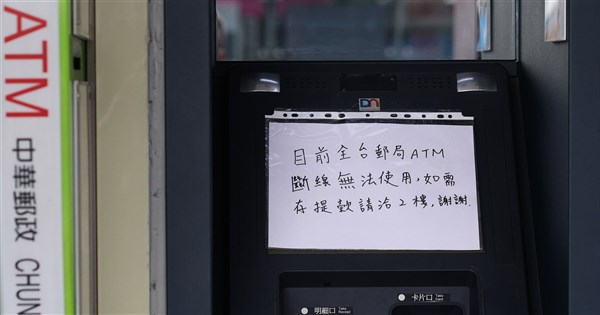 ATM
中華郵政 CHUN
目前全台郵局ATM
斷線無法使用,如需
存提款請洽2樓,謝謝.
明細口 Take Receipt
卡片口 Take Card